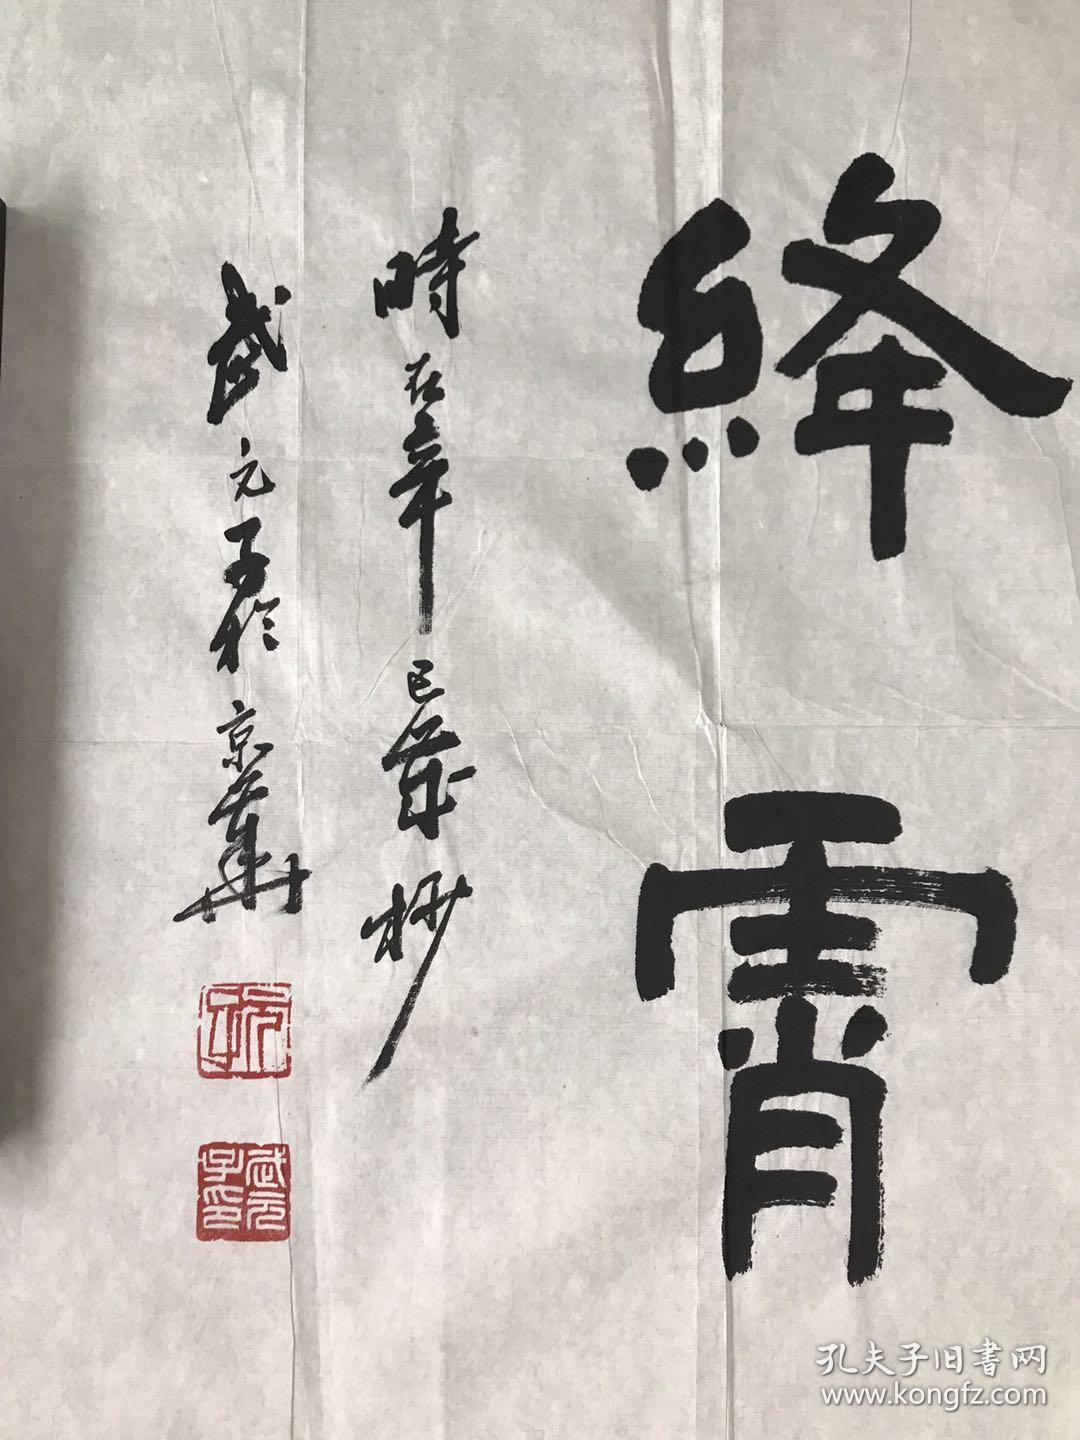 絳霄
時在辛巳歲杪
武元子於京華
武元子印
孔夫子旧書网
www.kongfz.com